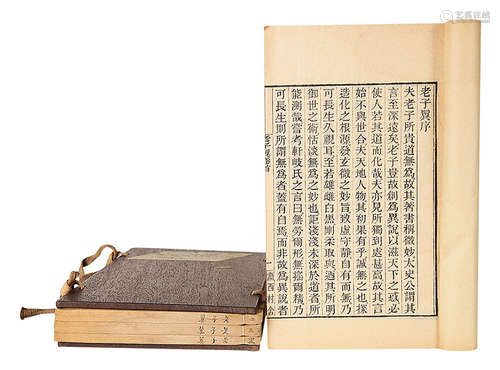 老子翼序
夫老子所貴道無爲故其著書稱微妙太史公謂其
言至深遠矣老子豈故創爲異說以滋天下之惑必
使人若其道而化哉夫亦見所獨到處甚高故其言
始不與世合夫天地人物其初果有乎誠無之也探
造化之根源發玄微之妙旨致虛守靜自有而無乃
可長生久視耳至若雄雌白黑剛柔取與道其所明
御世之術恬淡無爲之妙也詎淺淺未深於道者所
能測哉嘗考軒岐氏之言曰無勞爾形無搖爾精乃
可長生則所謂無爲者蓋有自焉而非故爲異說者
漸西村舍